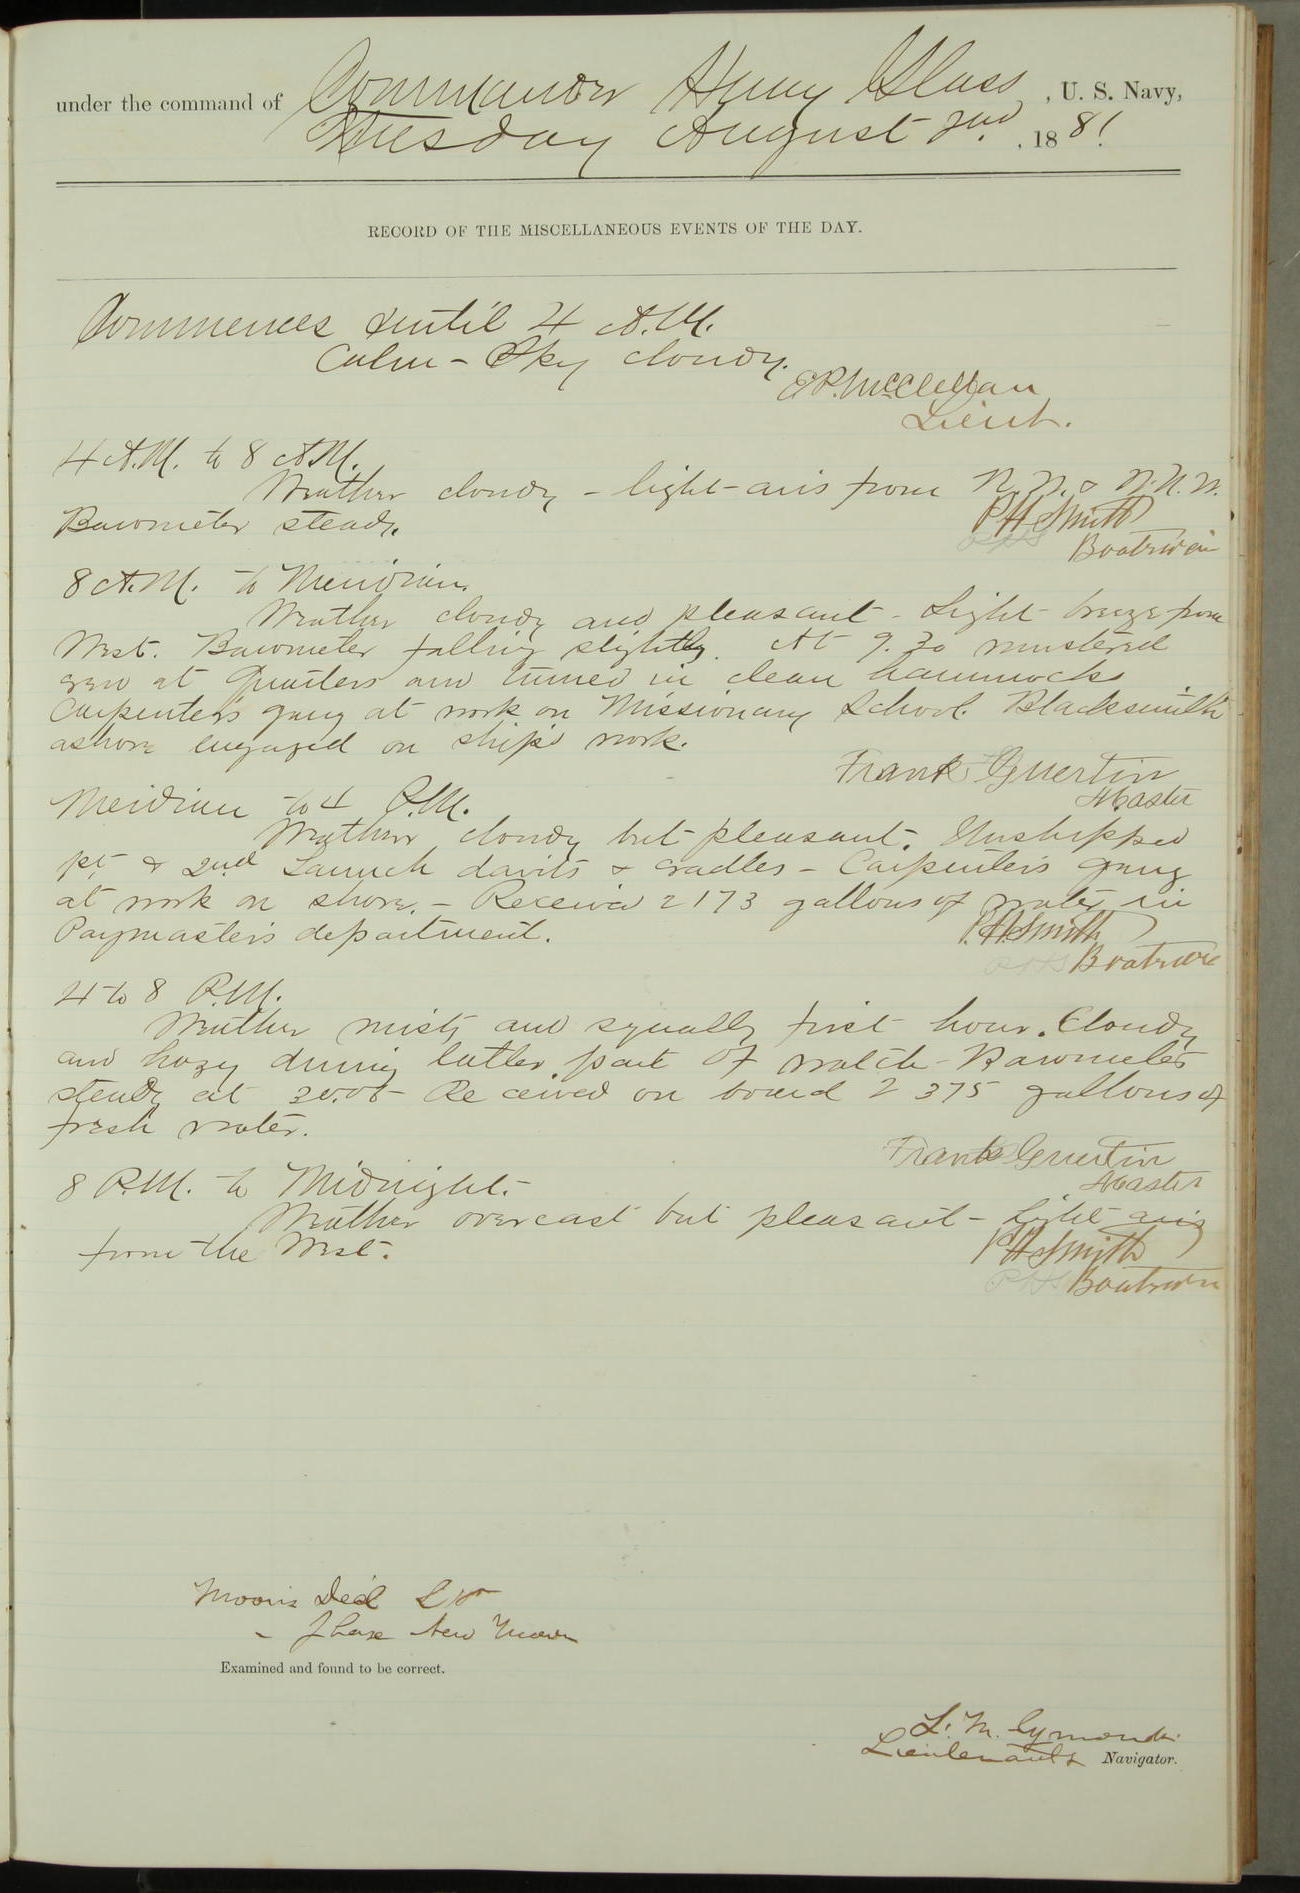 under the command of Commander Henry Glass, U. S. Navy,
Tuesday August 2nd, 1881.
RECORD OF THE MISCELLANEOUS EVENTS OF THE DAY.
Commences & until 4 A.M.
Calm - Sky cloudy.
E.P. McClellan
Lieut.
4 A.M. to 8 A.M.
Weather cloudy - light airs from N.W. & W.N.W.
P.H. Smith
Barometer steady.
Boatswain
8 A.M. to Meridian.
Weather cloudy and pleasant - Light breeze from
West. Barometer falling slightly. At 9.30 mustered
crew at Quarters and turned in clean hammocks.
Carpenters gang at work on Missionary School. Blacksmith
ashore engaged on ship's work.
Frank Guertin
Master
Meridian to 4 P.M.
Weather cloudy but pleasant. Unshipped
1st & 2nd Launch davits & cradles - Carpenter's gang
at work on shore. - Received 2173 gallons of water in
Paymaster's department.
P.H. Smith
Boatswain
4 to 8 P.M.
Weather misty and squally first hour. Cloudy
and hazy during latter part of watch - Barometer
steady at 30.06 - Received on board 2375 gallons of
fresh water.
Frank Guertin
Master
8 P.M. to Midnight.
Weather overcast but pleasant - light airs
from the West.
P.H. Smith
Boatswain
Moon's Decl
- Phase New Moon
Examined and found to be correct.
L. M.
Lieutenant & Navigator.